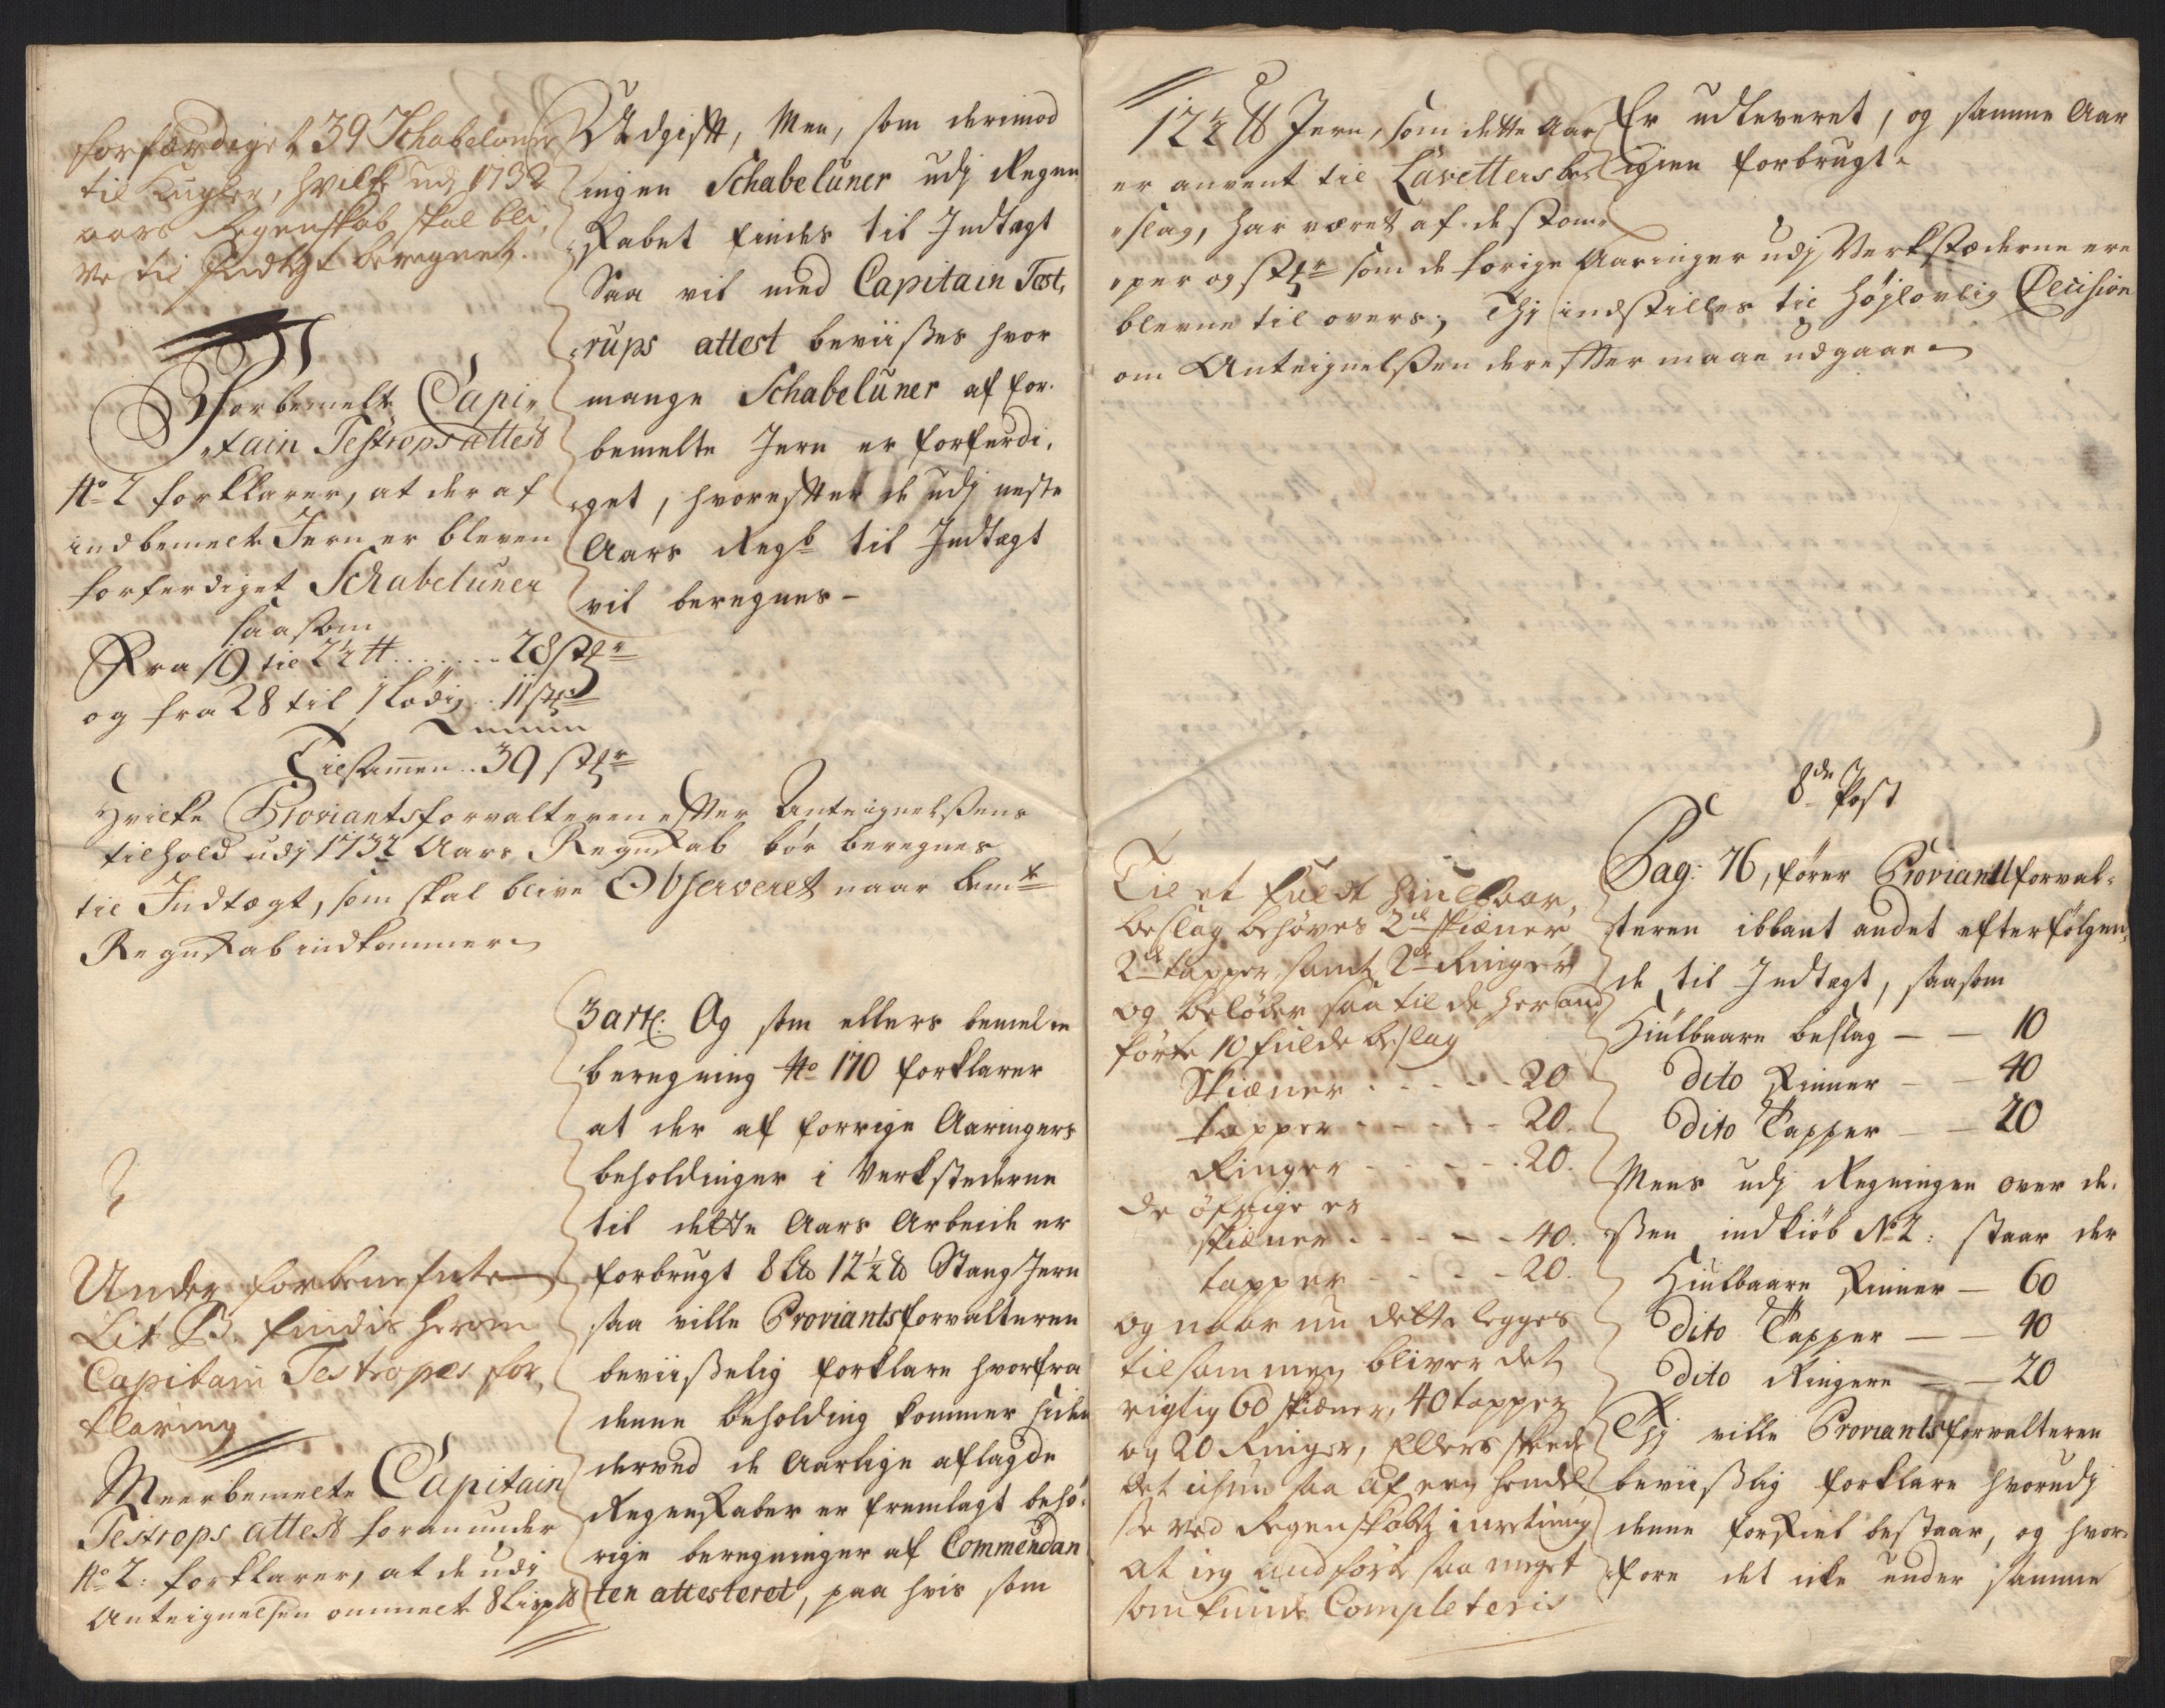 forfærdiget 39 Schabeloner
til Kugler, hvilke udj 1732
aars Regenskab skal bli,
ve til Indtegt beregnet.
Forbemelte Capi,
"tain Testrops attest
No 2 forklarer, at der af
indbemelte Jern er bleven
forferdiget Schabeluner
saasom
Fra 19 til 2½ ℔ . . . . . . . 28 stkr
og fra 28 til 1 lödig . . 11 stkr
Tilsammen . . 39 stkr
Hvilke Proviantsforvalteren efter Anteignelßens
tilhold udj 1732 Aars Regnskab bör beregnes
til Indtægt, som skal blive Observeret naar bemte
Regnskab indkommer
Under forbemeldte
Lit B. findis herom
Capitain Testropes for,
klaring
Meerbemelte Capitain
Testrops attest foran under
No 2: forklarer, at de udj
Anteignelsen ommelte 8 Lispd
Udgift, Men, som derimod
ingen Schabeluner udj Regen
skabet findes til Indtægt
Saa vil med Capitain Test,
"rups attest beviißes hvor
mange Schabeluner af for.
bemelte Jern er forferdi,
"get, hvorefter de udj neste
Aars Regsb til Indtægt
vil beregnes –
3 art: Og som ellers bemelte
beregning No 170 forklarer
at der af forrige Aaringers
beholdinger i Verkstederne
til dette Aars Arbeide er
forbrugt 8 L℔ 12½ ℔ Stang Jern
saa ville Proviantsforvalteren
beviißelig forklare hvorfra
denne beholding kommer siden
derved de Aarlige aflagde
Regenskaber er fremlagt behö,
rige beregninger af Commendan
ten attesteret, paa hvis som
12½ ℔ Jern, som dette Aar
er anvent til Lavetters be,
"slag, har været af de stom
"per og stkr som de forige Aaringer udj Verkstæderne ere
blevne til overs; Thj indstilles til höjlovlig Decision
om Anteignelßen derefter maae udgaae
Er udleveret, og samme Aar
igien forbrugt.
Til et fuldt Hiulbaar,
beslag behöves 2de skinner
2de tapper, samt 2de Ringer
og belöber saa til de her and
förte 10 fulde beslag
Skinner . . . . . 20
tapper . . . . . 20.
Ringer . . . . . 20.
de öfrige er
skinner . . . . . 40.
tapper . . . . . 20.
og naar nu dette legges
tilsammen bliver det
rigtig 60 skinner, 40 tapper
og 20 Ringer, Ellers skeede
det ichun saa af en hendel
se ved Regenskabets inretning
at ieg andförte saa meget
som kunde Completeris
8de Post
Pag: 76, förer Proviantsforval,
teren iblant andet efterfölgen,
de til Indtægt, saasom
Hiulbaare beslag — — 10
Dito Skinner — — 40
Dito Tapper — — 20
Mens udj Regningen over de.
ßen indkiöb No 2: staar der
Hiulbaare Skinner — 60
Dito Tapper — — 40
Dito Ringere — — 20
Thj ville Proviantsforvalteren
beviißlig forklare hvorudj
denne forskiel bestaar, og hvor,
fore det icke under samme